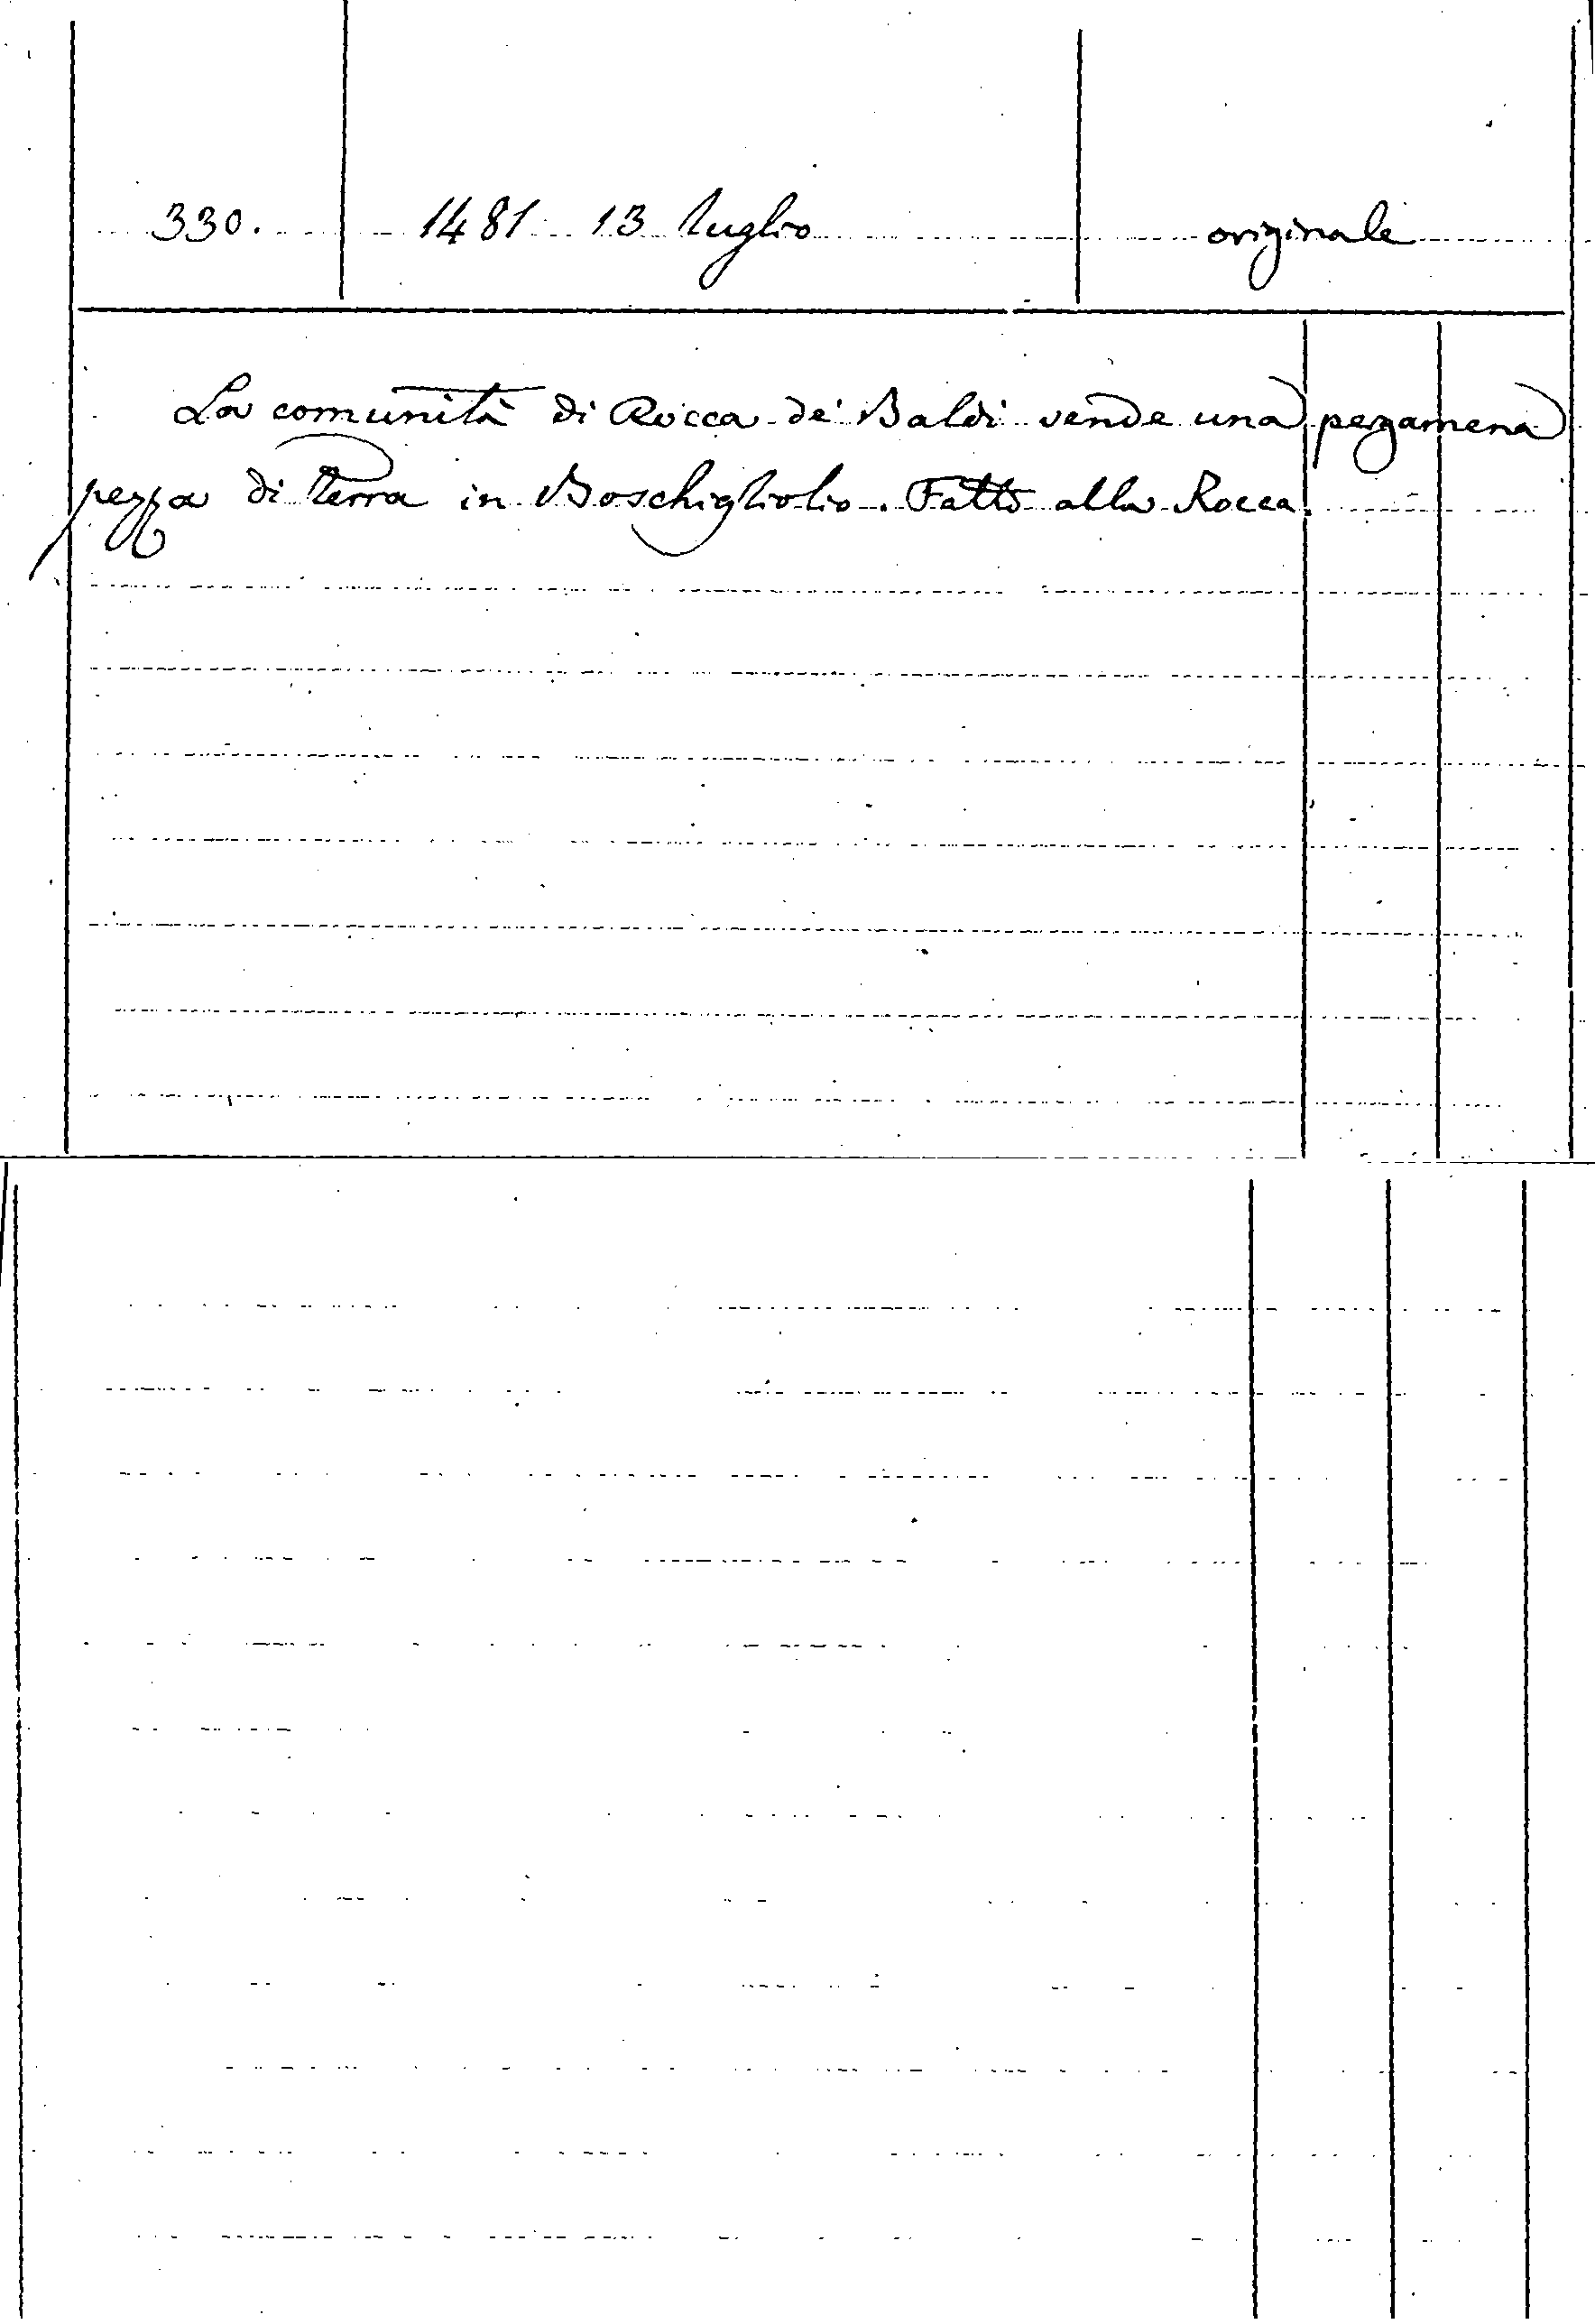 330. 1481 13 luglio originale
La comunità di Rocca de' Baldi vende una pergamena
pezza di terra in Boschigliolio. Fatto alla Rocca.